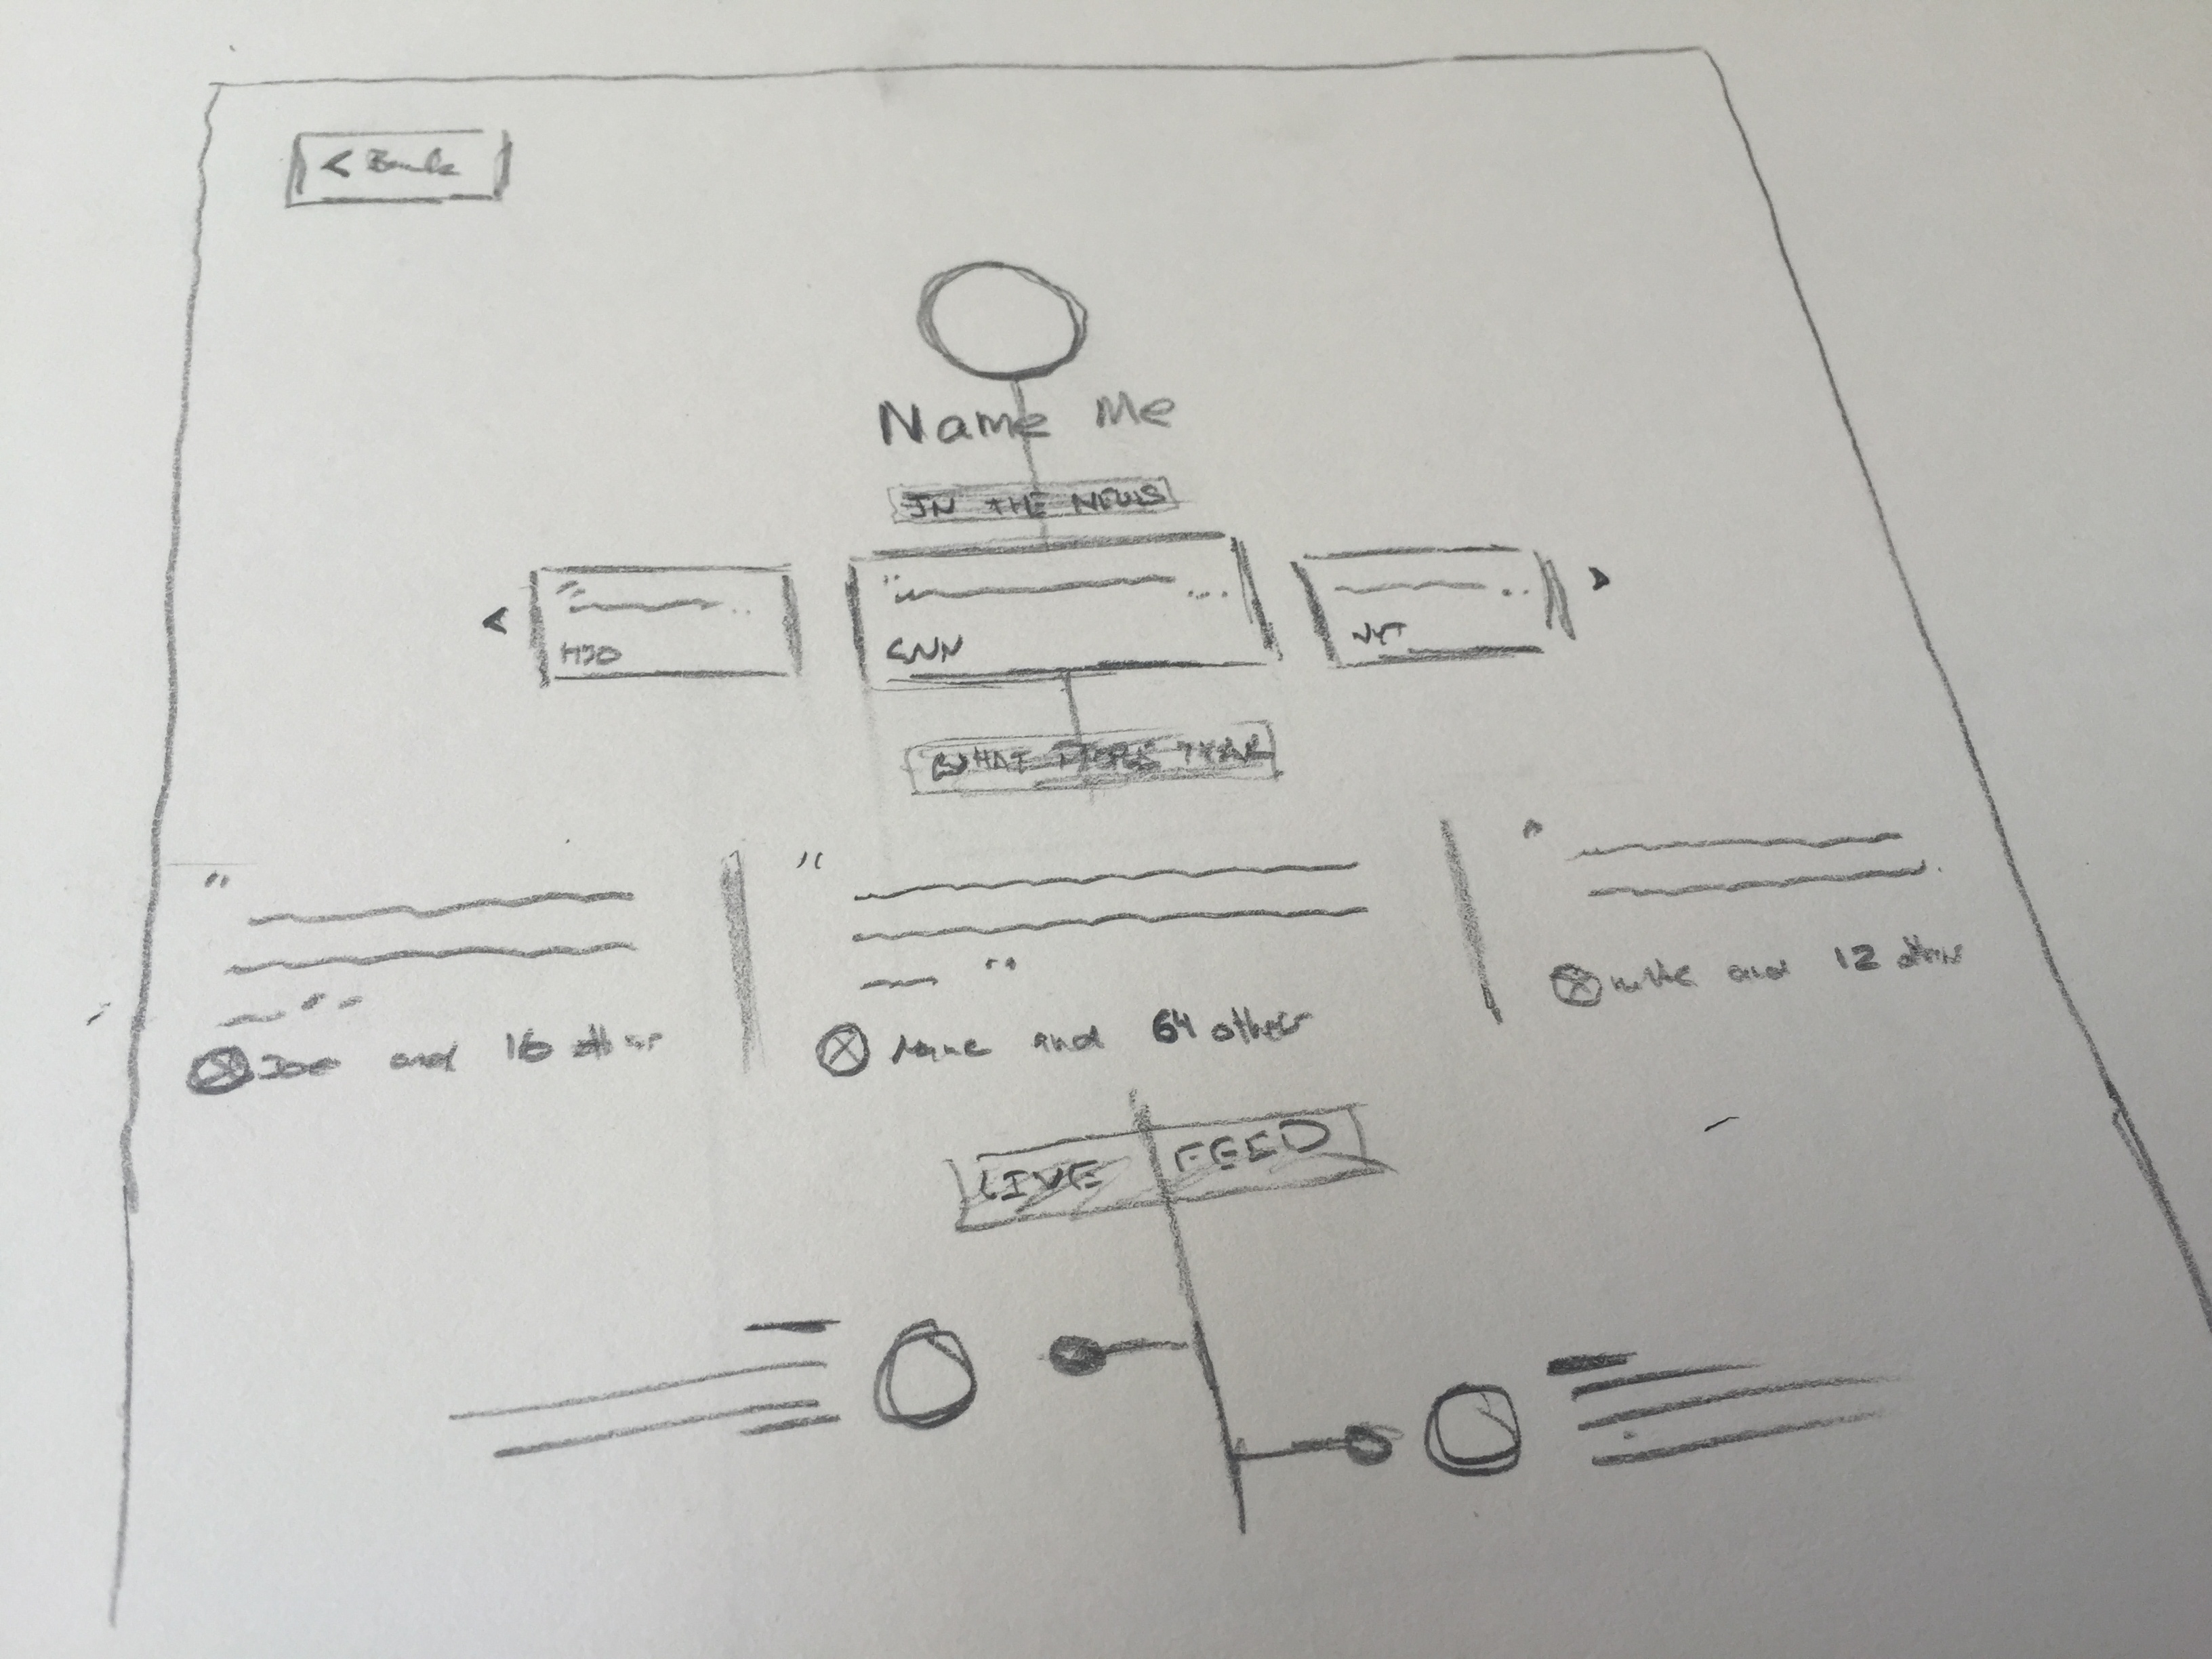 < Back
Name Me
IN THE NEWS
<
CNN
NYT
>
WHAT PEOPLE THINK
and 16 other
name and 64 other
and 12 others
LIVE FEED